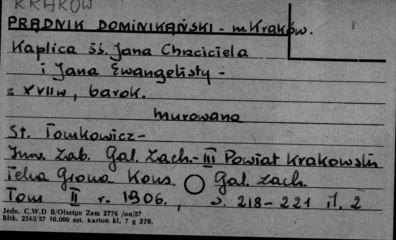 KRAKÓW
PRĄDNIK DOMINIKAŃSKI - m. Kraków.
Kaplica śś. Jana Chrzciciela
i Jana Ewangelisty -
z XVII w, barok.
murowana
St. Tomkowicz -
Inw. Zab. Gal. Zach. - III Powiat Krakowski
Teka Grona Kons. Gal. Zach.
Tom II r. 1906., s. 218-221 il. 2
Jedn. C.W.D B/Olsztyn Zam 2776 /on/57
Błtk. 2563/57 10.000 szt. karton kl. 7 g 220.